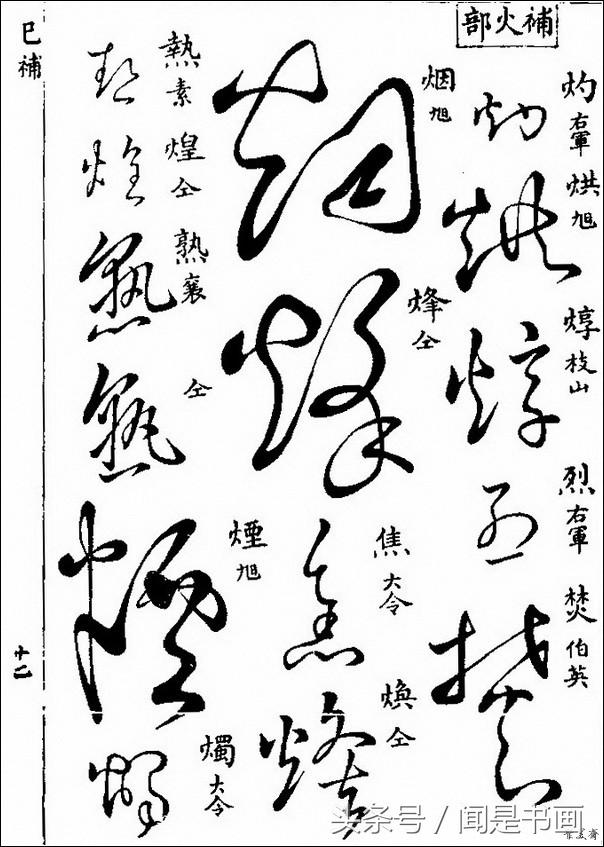 補火部
灼 右軍 烘 旭 焞 枝山 烈 右軍 焚 伯英
烟 旭 烽 仝 焦 大令 煥 仝
熱 素 煌 仝 熟 襄 仝 煙 旭 燭 大令
巳補 十二
头条号 / 闻是书画